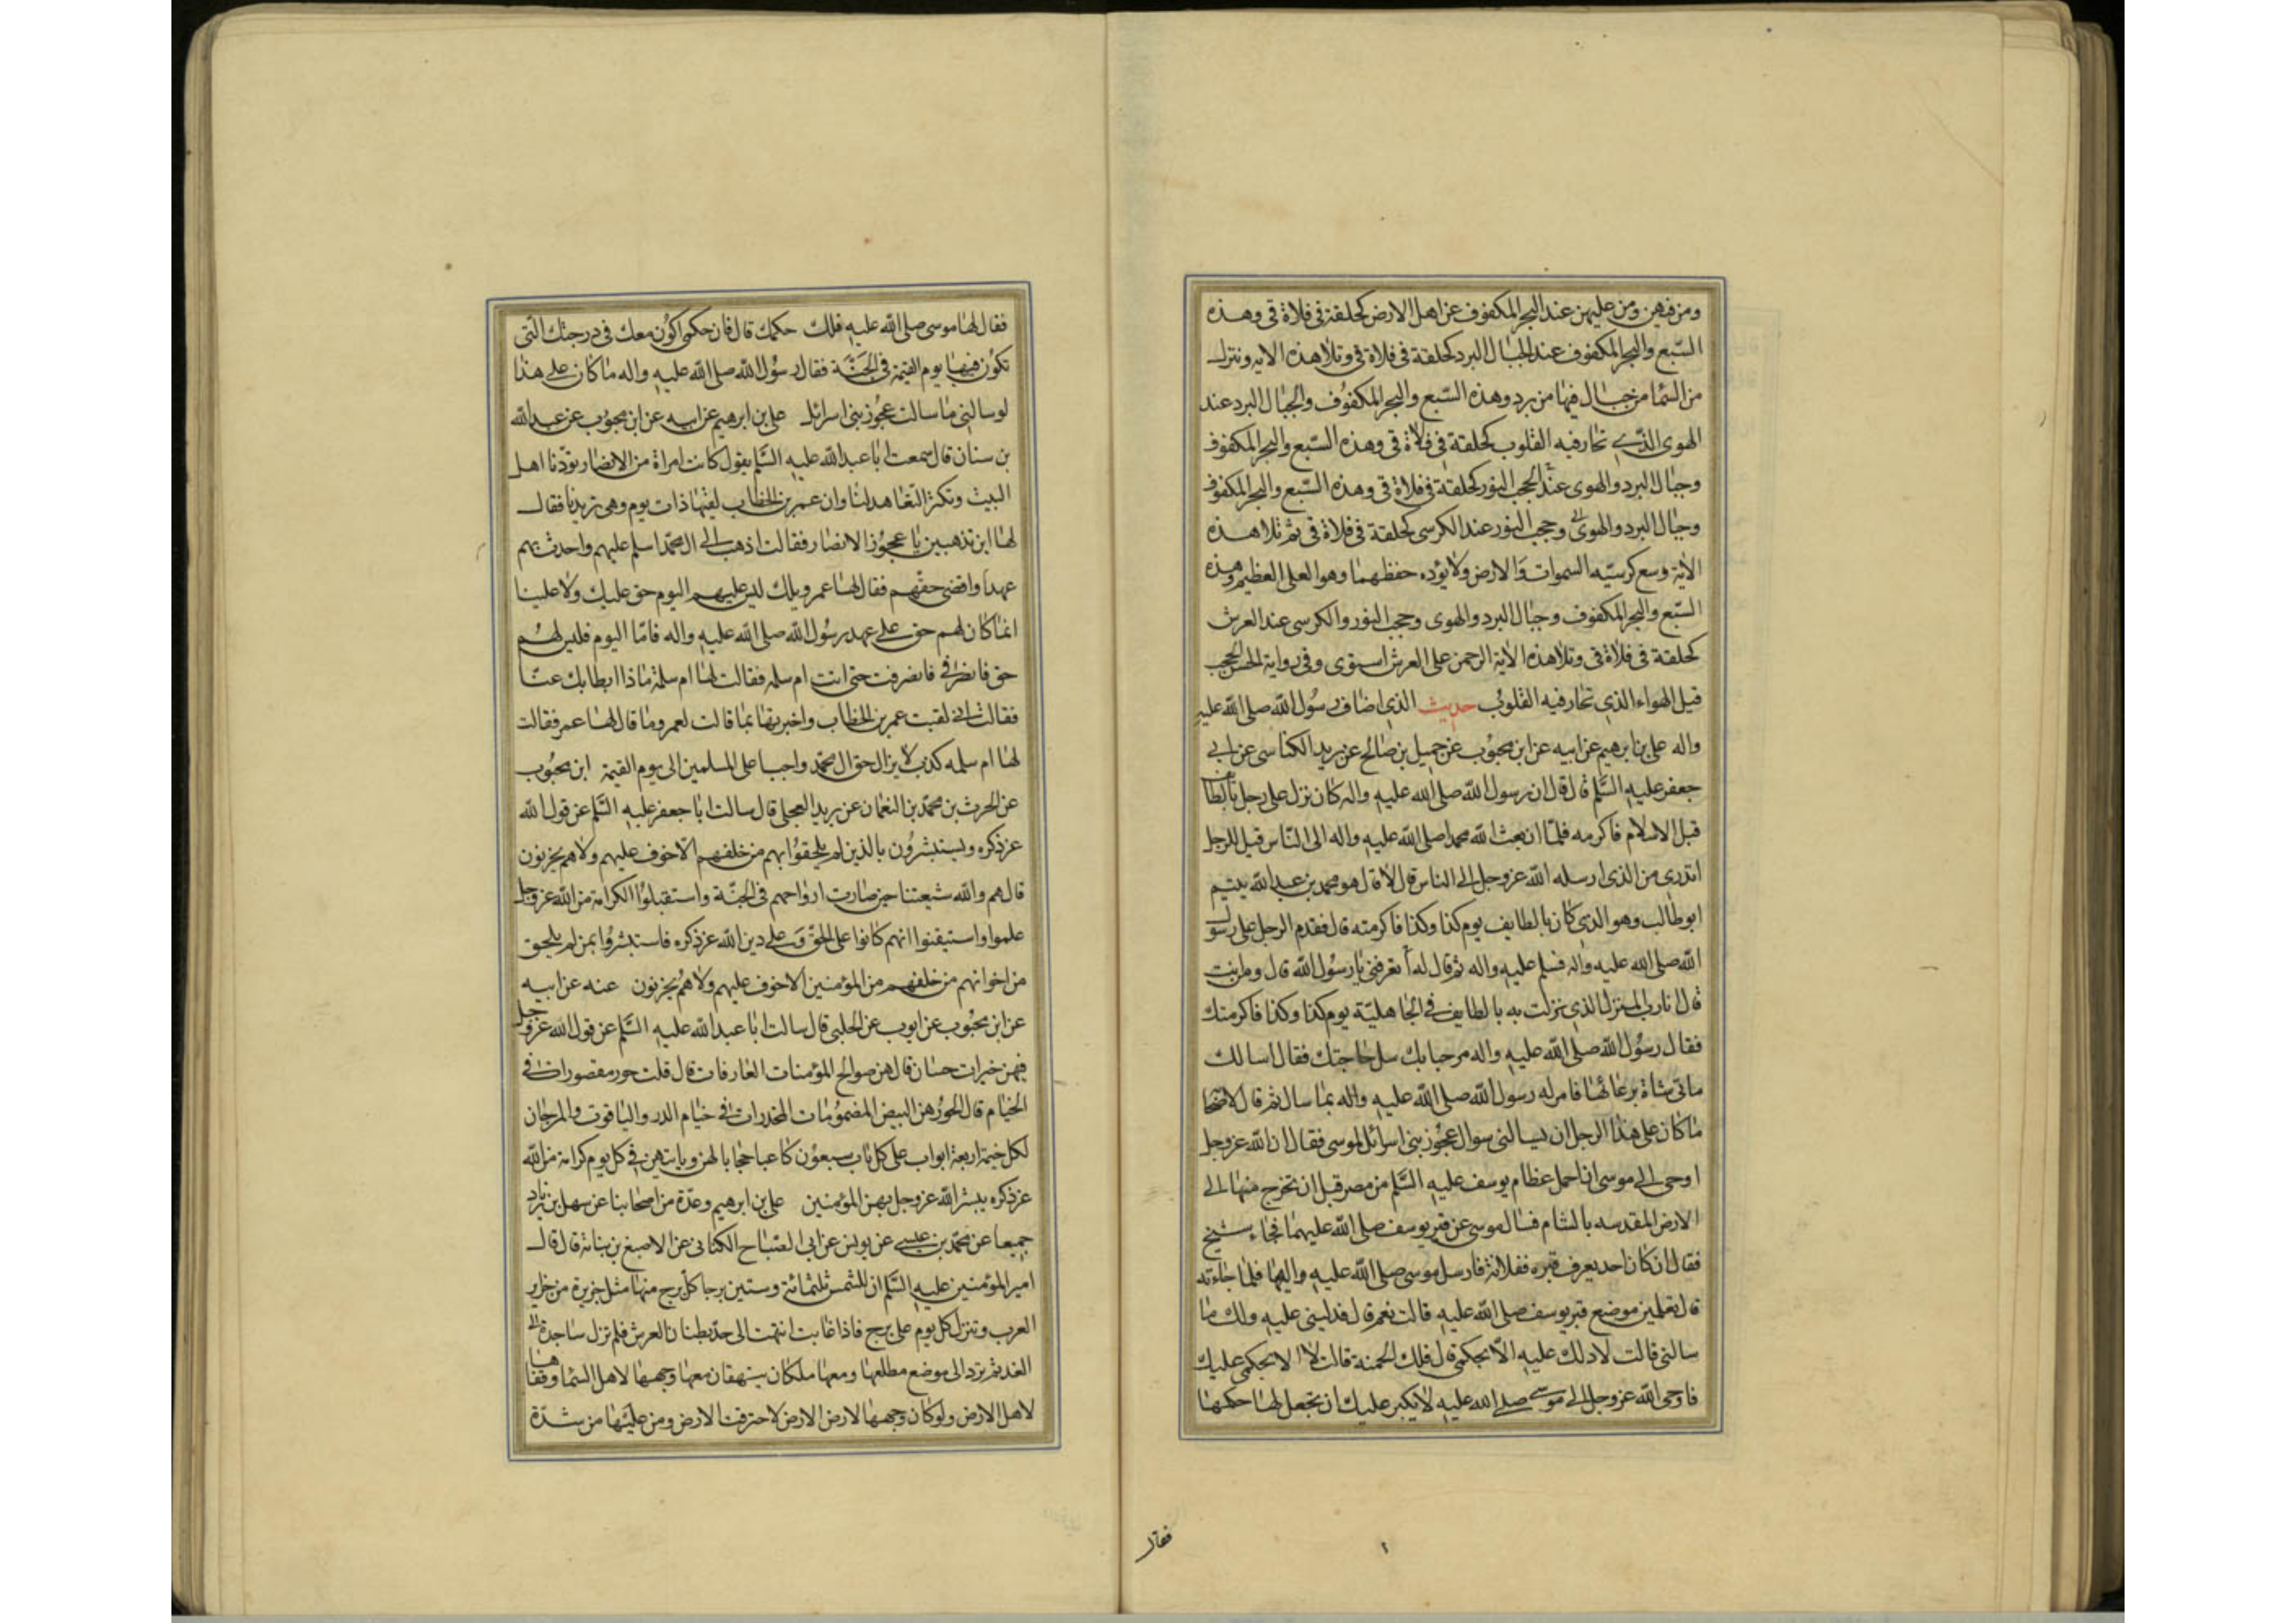 ومن فيهن ومن عليهن عند البحر المكفوف عن اهل الارض كحلقة في فلاة قي وهذه
السبع والبحر المكفوف عند الجبال البرد كحلقة في فلاة قي وتلا هذه الايه وننزل
من السما من جبال فيها من برد وهذه السبع والبحر المكفوف والجبال البرد عند
الهوى الذي تحار فيه القلوب كحلقة في فلاة قي وهذه السبع والبحر المكفوف
وجبال البرد والهوى عند الحجب النور كحلقة في فلاة قي وهذه السبع والبحر المكفوف
وجبال البرد والهوى وحجب النور عند الكرسى كحلقة في فلاة قي ثم تلا هذه
الاية وسع كرسيه السموات والارض ولا يؤده حفظهما وهو العلى العظيم وهذه
السبع والبحر المكفوف وجبال البرد والهوى وحجب النور والكرسى عند العرش
كحلقة في فلاة قي وتلا هذه الاية الرحمن على العرش استوى وفي رواية الحسن الحجب
قبل الهواء الذي تحار فيه القلوب حديث الذي اضاف رسول الله صلى الله عليه
واله على بن ابرهيم عن ابيه عن ابن محبوب عن جميل بن صالح عن يزيد الكناسى عن ابي
جعفر عليه السلم قال قال ان رسول الله صلى الله عليه واله كان نزل على رجل بالطائف
قبل الاسلام فاكرمه فلما ان بعث الله محمدا صلى الله عليه واله الى الناس قيل للرجل
اتدرى من الذى ارسله الله عز وجل الى الناس قال لا قال هو محمد بن عبد الله يتيم
ابوطالب وهو الذي كان بالطايف يوم كذا وكذا فاكرمته قال فقدم الرجل على رسول
الله صلى الله عليه واله فسلم عليه واله ثم قال له أتعرفنى يا رسول الله قال ومن انت
قال انا رب المنزل الذي نزلت به بالطايف في الجاهلية يوم كذا وكذا فاكرمتك
فقال رسول الله صلى الله عليه واله مرحبا بك سل حاجتك فقال اسالك
ماتى شاة برعائها فامر له رسول الله صلى الله عليه واله بما سال ثم قال لاصحابه
ما كان على هذا الرجل ان يسالنى سوال عجوز بنى اسرائل لموسى فقال ان الله عز وجل
اوحى الى موسى ان احمل عظام يوسف عليه السلم من مصر قبل ان تخرج منها الى
الارض المقدسه بالشام فسال موسى عن قبر يوسف صلى الله عليهما فجاءه شيخ
فقال ان كان احد يعرف قبره ففلانة فارسل موسى صلى الله عليه واليها فلما جاءته
قال تعلمين موضع قبر يوسف صلى الله عليه قالت نعم قال فدلينى عليه ولك ما
سالتى قالت لا ادلك عليه الا بحكمى قال فلك الجنة قالت لا الا بحكمى عليك
فاوحى الله عز وجل الى موسى صلى الله عليه لا يكبر عليك ان تجعل لها حكمها
فقال
فقال لها موسى صلى الله عليه فلك حكمك قال فان حكمى اكون معك في درجتك التى
تكون فيها يوم القيمة في الجنة فقال رسول الله صلى الله عليه واله ما كان على هذا
لو سالنى ما سالت عجوز بنى اسرائل على بن ابرهيم عن ابيه عن ابن محبوب عن عبد الله
بن سنان قال سمعت ابا عبد الله عليه السلم يقول كانت امراة من الانصار تودنا اهل
البيت وتكثر التعاهد لنا وان عمر بن الخطاب لقيها ذات يوم وهى تريدنا فقال
لها اين تذهبين يا عجوز الانصار فقالت اذهب الى ال محمد اسلم عليهم واحدث بهم
عهدا واقضى حقهم فقال لها عمر ويلك ليس عليهم اليوم حق عليك ولا علينا
انما كان لهم حق على عهد رسول الله صلى الله عليه واله فاما اليوم فليس لهم
حق فانصرفي فانصرفت حتى اتت ام سلمه فقالت لها ام سلمة ماذا ابطا بك عنا
فقالت انى لقيت عمر بن الخطاب واخبرتها بما قالت لعمر وما قال لها عمر فقالت
لها ام سلمه كذب لا يزال حق ال محمد واجبا على المسلمين الى يوم القيمة ابن محبوب
عن الحرث بن محمد بن النعمان عن بريد العجلى قال سالت ابا جعفر عليه السلم عن قول الله
عز ذكره ويستبشرون بالذين لم يلحقوا بهم من خلفهم الا خوف عليهم ولا هم يحزنون
قال هم والله شيعتنا حين صارت ارواحهم في الجنة واستقبلوا الكرامة من الله عز وجل
علموا واستيقنوا انهم كانوا على الحق وعلى دين الله عز ذكره فاستبشروا بمن لم يلحق
من اخوانهم من خلفهم من المؤمنين الا خوف عليهم ولا هم يحزنون عنه عن ابيه
عن ابن محبوب عن ايوب عن الحلبى قال سالت ابا عبد الله عليه السلم عن قول الله عز وجل
فيهن خيرات حسان قال هن صوالح المؤمنات العارفات قال قلت حور مقصورات في
الخيام قال الحور هن البيض المضمومات المخدرات في خيام الدر والياقوت والمرجان
لكل خيمة اربعة ابواب على كل باب سبعون كاعبا حجابا لهن وياتيهن في كل يوم كرامة من الله
عز ذكره يبشر الله عز وجل بهن المؤمنين على بن ابرهيم وعدة من اصحابنا عن سهل بن زياد
جميعا عن محمد بن عيسى عن يونس عن ابي الصباح الكنانى عن الاصبغ بن نباتة قال قال
امير المؤمنين عليه السلم ان للشمس ثلثمائة وستين برجا كل برج منها مثل جزيرة من جزاير
العرب وتنزل كل يوم على برج فاذا غابت انتهت الى حد بطنان العرش فلم تزل ساجدة الى
الغد ثم ترد الى موضع مطلعها ومعها ملكان يهتفان معها وجهها لاهل السما وقفاها
لاهل الارض ولو كان وجهها لارض الارض لاحترقت الارض ومن عليها من شدة